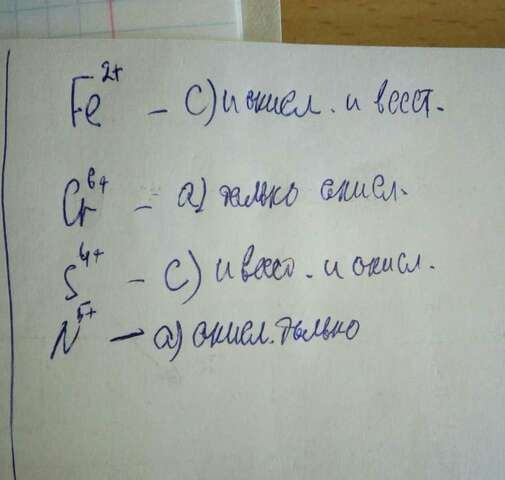 Fe²⁺ – C) и окисл. и восст.
Cr⁶⁺ – a) только окисл.
S⁴⁺ – C) и восс. и окисл.
N⁵⁺ – a) окисл. только